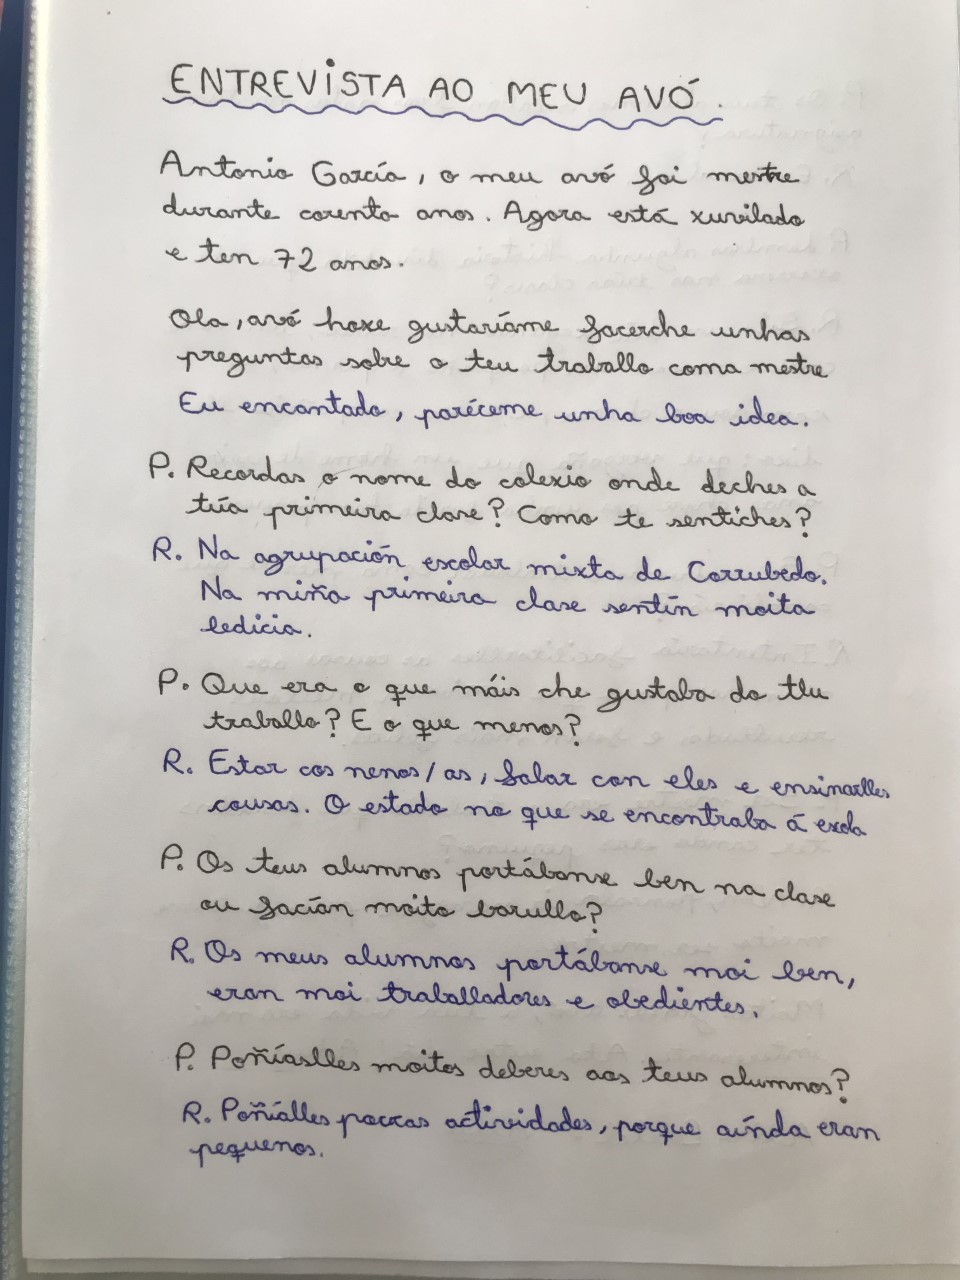 ENTREVISTA AO MEU AVÓ.
Antonio García, o meu avó foi mestre
durante corenta anos. Agora está xuvilado
e ten 72 anos.
Ola, avó hoxe gustaríame facerche unhas
preguntas sobre o teu traballo coma mestre
Eu encantado, paréceme unha boa idea.
P. Recordas o nome do colexio onde deches a
túa primeira clase? Como te sentiches?
R. Na agrupación escolar mixta de Corrubedo.
Na miña primeira clase sentín moita
ledicia.
P. Que era o que máis che gustaba do teu
traballo? E o que menos?
R. Estar cos nenos/as, falar con eles e ensinarlles
cousas. O estado no que se encontraba á escola
P. Os teus alumnos portábanse ben na clase
ou facían moito barullo?
R. Os meus alumnos portábanse moi ben,
eran moi traballadores e obedientes.
P. Poñíaslles moitos deberes aos teus alumnos?
R. Poñíalles poucas actividades, porque aínda eran
pequenos.